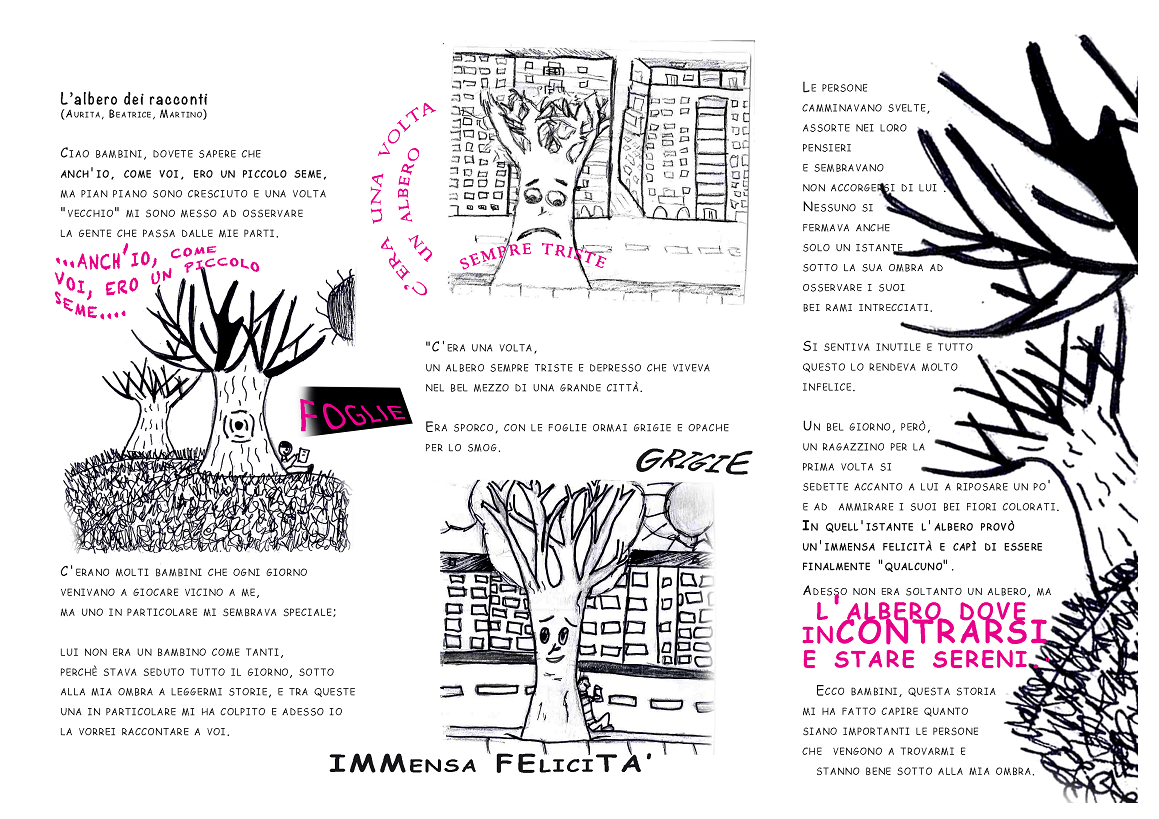 L'albero dei racconti
(Aurita, Beatrice, Martino)
Ciao bambini, dovete sapere che
anch'io, come voi, ero un piccolo seme,
ma pian piano sono cresciuto e una volta
"vecchio" mi sono messo ad osservare
la gente che passa dalle mie parti.
...ANCH'IO, COME
VOI, ERO UN PICCOLO
SEME....
FOGLIE
C'erano molti bambini che ogni giorno
venivano a giocare vicino a me,
ma uno in particolare mi sembrava speciale;
lui non era un bambino come tanti,
perchè stava seduto tutto il giorno, sotto
alla mia ombra a leggermi storie, e tra queste
una in particolare mi ha colpito e adesso io
la vorrei raccontare a voi.
C'ERA UNA VOLTA
UN ALBERO
SEMPRE TRISTE
"C'era una volta,
un albero sempre triste e depresso che viveva
nel bel mezzo di una grande città.
Era sporco, con le foglie ormai grigie e opache
per lo smog.
GRIGIE
IMMensa FEliciTA'
Le persone
camminavano svelte,
assorte nei loro
pensieri
e sembravano
non accorgersi di lui .
Nessuno si
fermava anche
solo un istante
sotto la sua ombra ad
osservare i suoi
bei rami intrecciati.
Si sentiva inutile e tutto
questo lo rendeva molto
infelice.
Un bel giorno, però,
un ragazzino per la
prima volta si
sedette accanto a lui a riposare un po'
e ad ammirare i suoi bei fiori colorati.
In quell'istante l'albero provò
un'immensa felicità e capì di essere
finalmente "qualcuno".
Adesso non era soltanto un albero, ma
L'ALBERO DOVE
INCONTRARSI
E STARE SERENI..
Ecco bambini, questa storia
mi ha fatto capire quanto
siano importanti le persone
che vengono a trovarmi e
stanno bene sotto alla mia ombra.